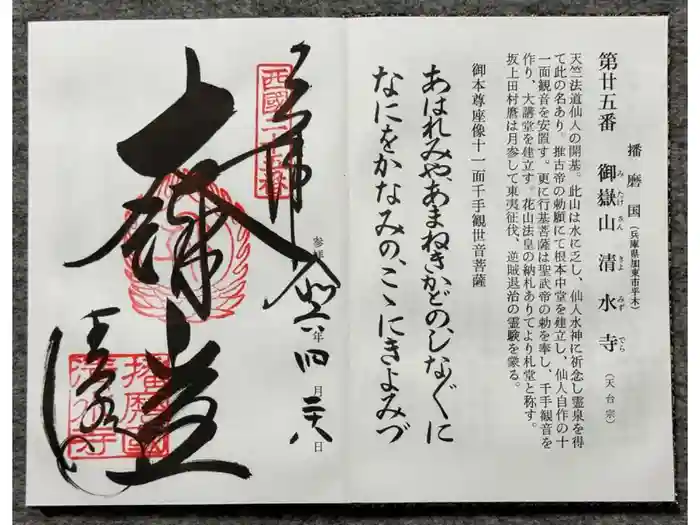 第廿五番
播磨国(兵庫県加東市平木)
御嶽山 清水寺(天台宗)
みたけさん きよみずでら
天竺法道仙人の開基。此山は水に乏し、仙人水神に祈念し霊泉を得
て此の名あり。推古帝の勅願にて根本中堂を建立し、仙人自作の十
一面観音を安置す。更に行基菩薩は聖武帝の勅を奉し、千手観音を
作り、大講堂を建立す。花山法皇の納札ありてより札堂と称す。
坂上田村麿は月参して東夷征伐、逆賊退治の霊験を蒙る。
御本尊座像十一面千手観世音菩薩
あはれみや、あまねきかどの、しなぐに
なにをかなみの、こゝにきよみづ
西國二十五番
奉拝
参拝
年四月六日
大講堂
清水寺
播磨國
清水寺